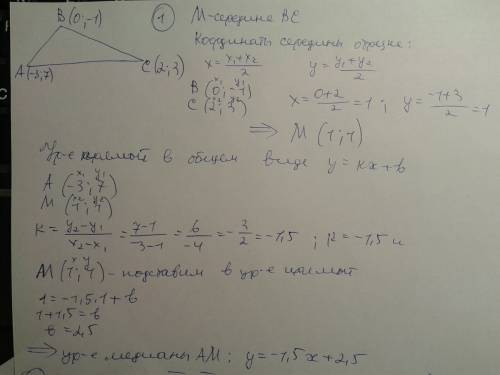 B(0;-1)
A(-3;7)
C(2;3)
① М-середине ВС
Координаты середины отрезка:
x = (x₁+x₂)/2   y = (y₁+y₂)/2
x₁ y₁
B (0;-1)
x₂ y₂
C (2; 3)
x = (0+2)/2 = 1 ; y = (-1+3)/2 = 1
⟹ M (1;1)
Ур-е прямой в общем виде y = kx + b
x₁ y₁
A (-3; 7)
x₂ y₂
M (1; 1)
k = (y₂-y₁)/(x₂-x₁) = (7-1)/(-3-1) = 6/-4 = -3/2 = -1,5 ; k = -1,5 и
x y
M (1; 1) - подставим в ур-е прямой
1 = -1,5·1 + b
1+1,5 = b
b = 2,5
⟹ ур-е медианы AM: y = -1,5x + 2,5